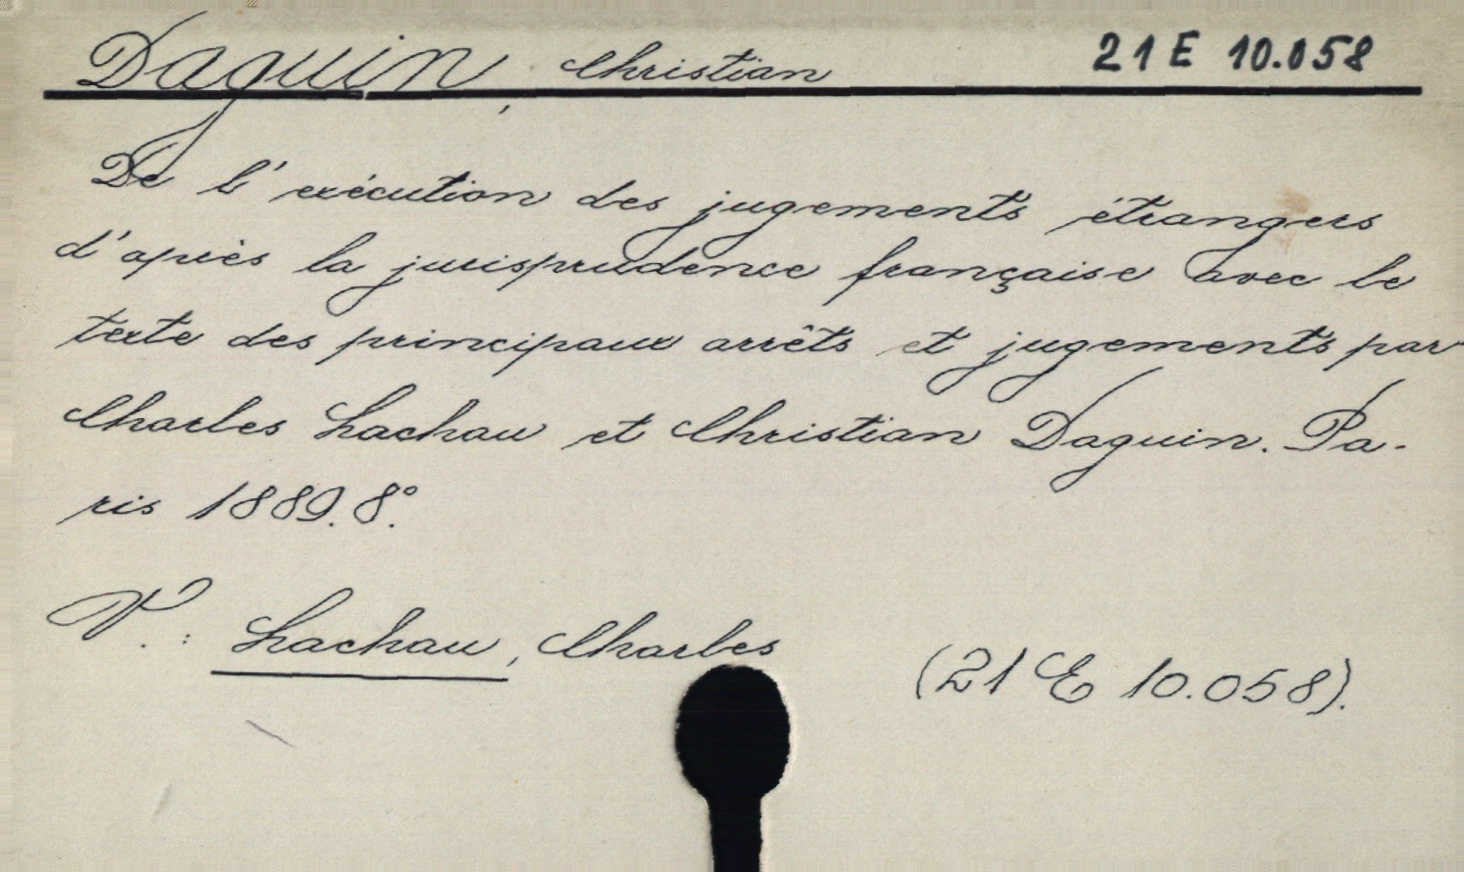 Daguin, Christian 21 E 10.058
De l'exécution des jugements étrangers
d'après la jurisprudence française avec le
texte des principaux arrêts et jugements par
Charles Lachau et Christian Daguin. Pa-
ris 1889. 8°.
V.: Lachau, Charles (21 E 10.058).